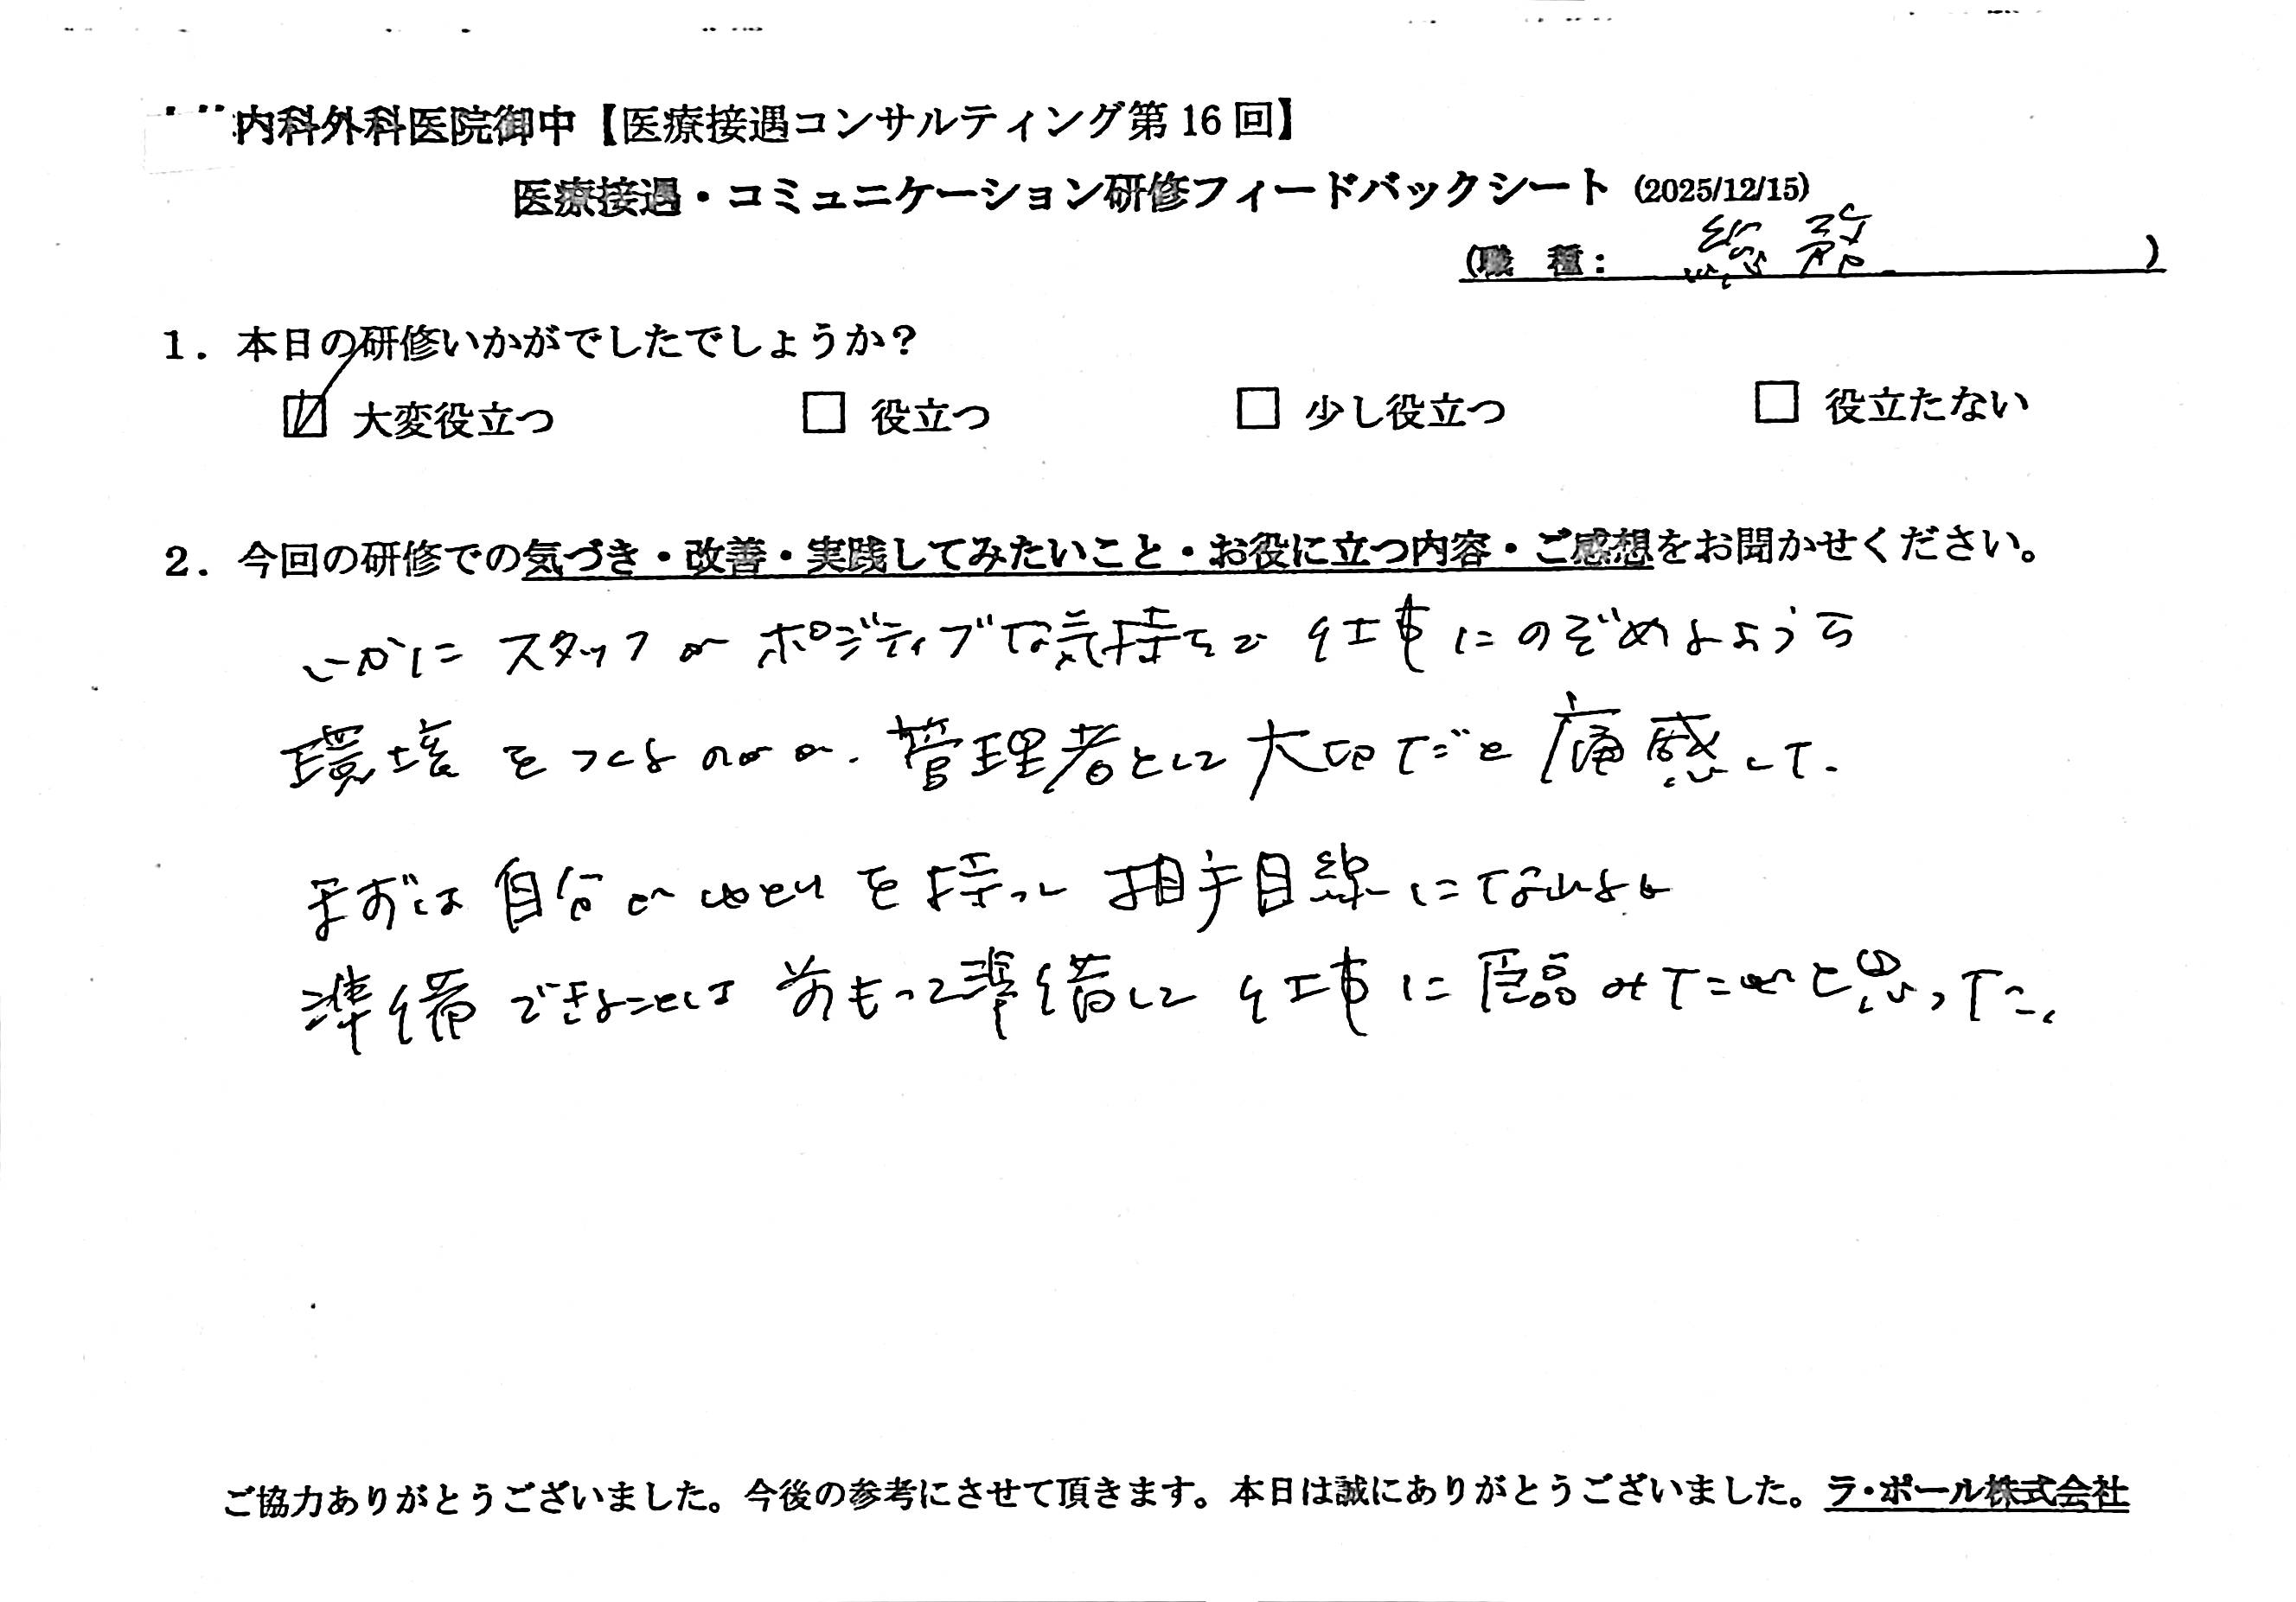 内科外科医院御中【医療接遇コンサルティング第16回】
医療接遇・コミュニケーション研修フィードバックシート (2025/12/15)
(職 種: 総務 )
1. 本日の研修いかがでしたでしょうか?
☑ 大変役立つ □ 役立つ □ 少し役立つ □ 役立たない
2. 今回の研修での気づき・改善・実践してみたいこと・お役に立つ内容・ご感想をお聞かせください。
いかに スタッフが ポジティブな気持ちで 仕事にのぞめるような
環境をつくるのかが、管理者として大切だと痛感した。
まずは自分がゆとりを持って相手目線になれるよう
準備できることは前もって準備して仕事に臨みたいと思った。
ご協力ありがとうございました。今後の参考にさせて頂きます。本日は誠にありがとうございました。ラ・ポール株式会社